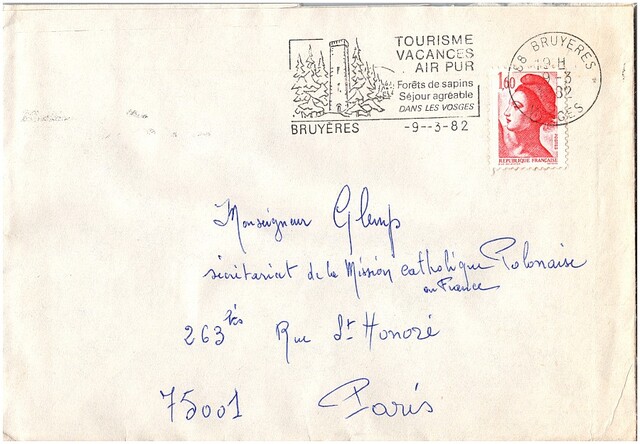 TOURISME
VACANCES
AIR PUR
Forêts de sapins
Séjour agréable
DANS LES VOSGES
BRUYÈRES -9--3-82
88 BRUYERES
19 H
9 - 3
82
VOSGES
1,60
REPUBLIQUE FRANÇAISE
Monseigneur Glemp
sécrétariat de la Mission catholique Polonaise
en France
263 bis Rue St Honoré
75001 Paris